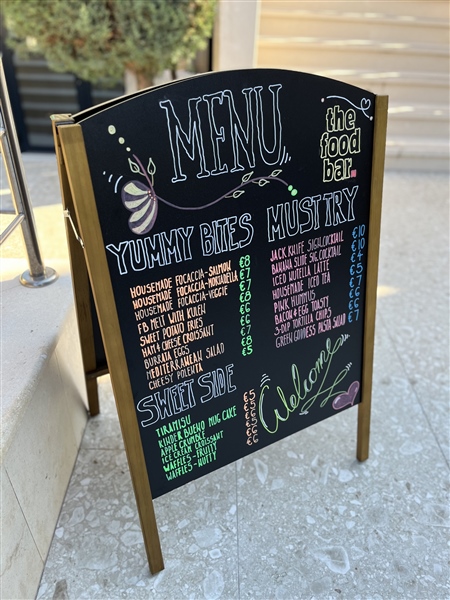 MENU
the
food
bar.
YUMMY BITES
HOUSEMADE FOCACCIA-SALMON €8
HOUSEMADE FOCACCIA-MORTADELLA €7
HOUSEMADE FOCACCIA-VEGGIE €7
FB MELT WITH KULEN €8
SWEET POTATO FRIES €6
HAM & CHEESE CROISSANT €6
BURRATA EGGS
MEDITERRANEAN SALAD €8
CHEESY POLENTA €5
MUST TRY
JACK KNIFE SIG.COCKTAIL €10
BANANA SLIDE SIG COCKTAIL €10
ICED NUTELLA LATTE €4
HOUSEMADE ICED TEA €5
PINK HUMMUS €7
BACON & EGG TOAST €6
3-DIP TORTILLA CHIPS €6
GREEN GODDESS PASTA SALAD €7
SWEET SIDE
TIRAMISU €5
KINDER BUENO MUG CAKE €5
APPLE CRUMBLE €5
ICE CREAM CROISSANT €6
WAFFLES - FRUITY €6
WAFFLES - NUTTY €6
Welcome